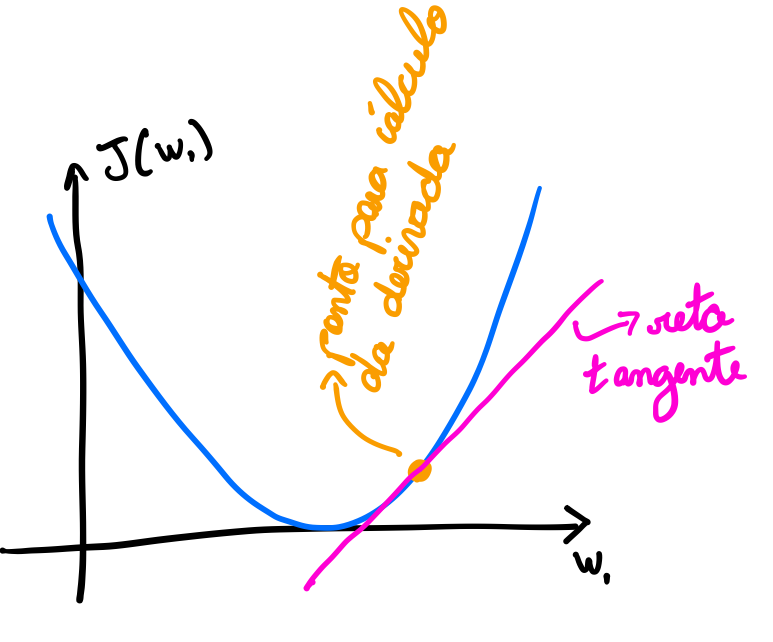 J(w₁)
Ponto para cálculo
da derivada
reta
tangente
w₁